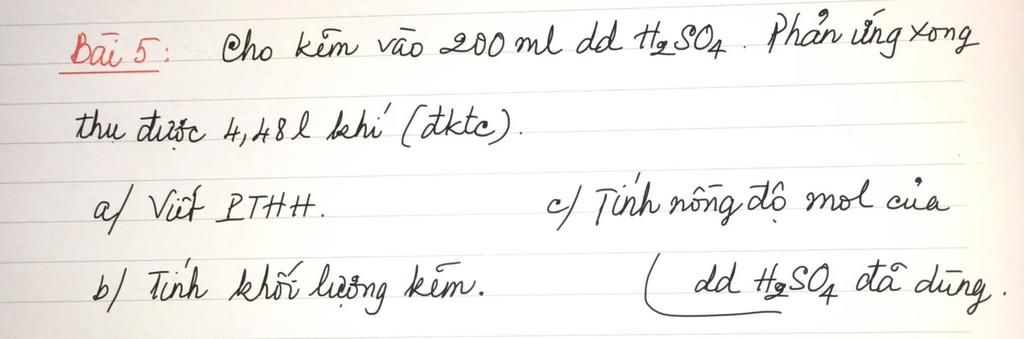 Bài 5: Cho kẽm vào 200 ml dd H₂SO₄. Phản ứng xong
thu được 4,48 l khí (đktc).
a/ Viết PTHH.
b/ Tính khối lượng kẽm.
c/ Tính nồng độ mol của
dd H₂SO₄ đã dùng.